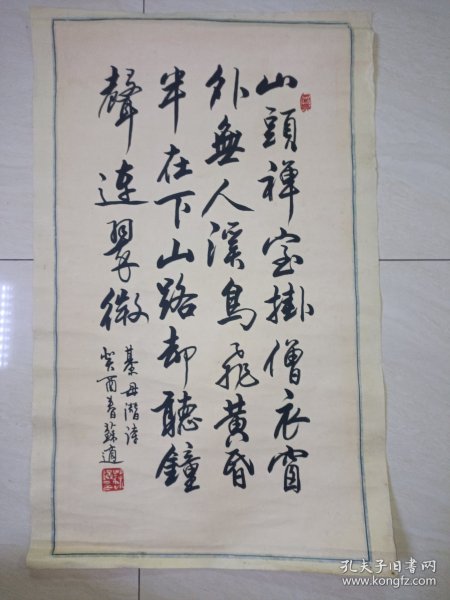 山頭禪室掛僧衣窗
外無人溪鳥飛黄昏
半在下山路却聽鐘
聲連翠微
綦毋潛詩
癸酉春蘇適
孔夫子旧书网
www.kongfz.com